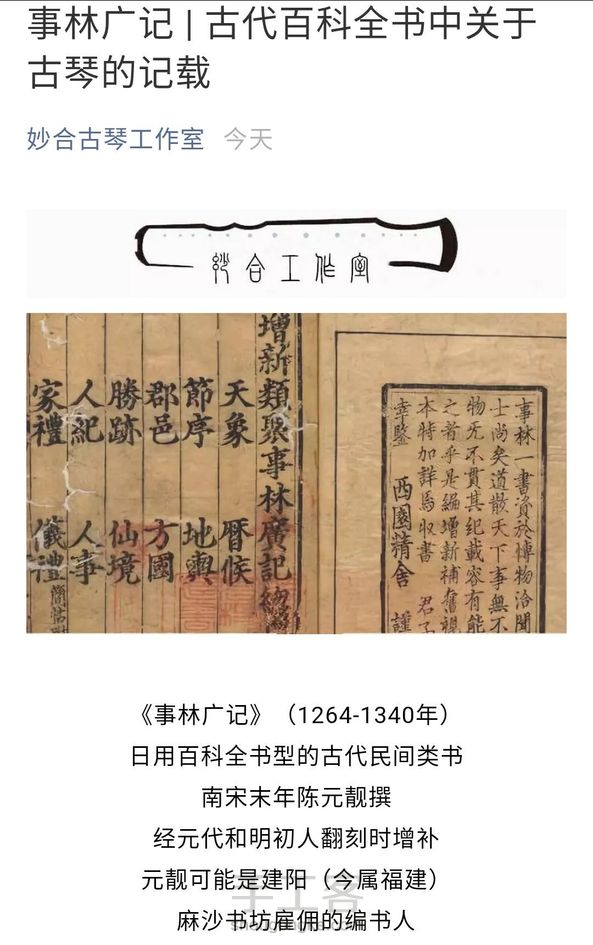 事林广记 | 古代百科全书中关于
古琴的记载
妙合古琴工作室 今天
妙合工作室
增新類聚事林廣記總
天象 曆候
節序 地輿
郡邑 方國
勝跡 仙境
人紀 人事
家禮 儀禮
事林一書資於博物洽聞
士尚矣道散天下事無不
物旡不貫其紀載容有能
之者乎是編增新補舊視
本特加詳焉收書 君子
幸鑒 西園精舍 謹
《事林广记》（1264-1340年）
日用百科全书型的古代民间类书
南宋末年陈元靓撰
经元代和明初人翻刻时增补
元靓可能是建阳（今属福建）
麻沙书坊雇佣的编书人
手工客